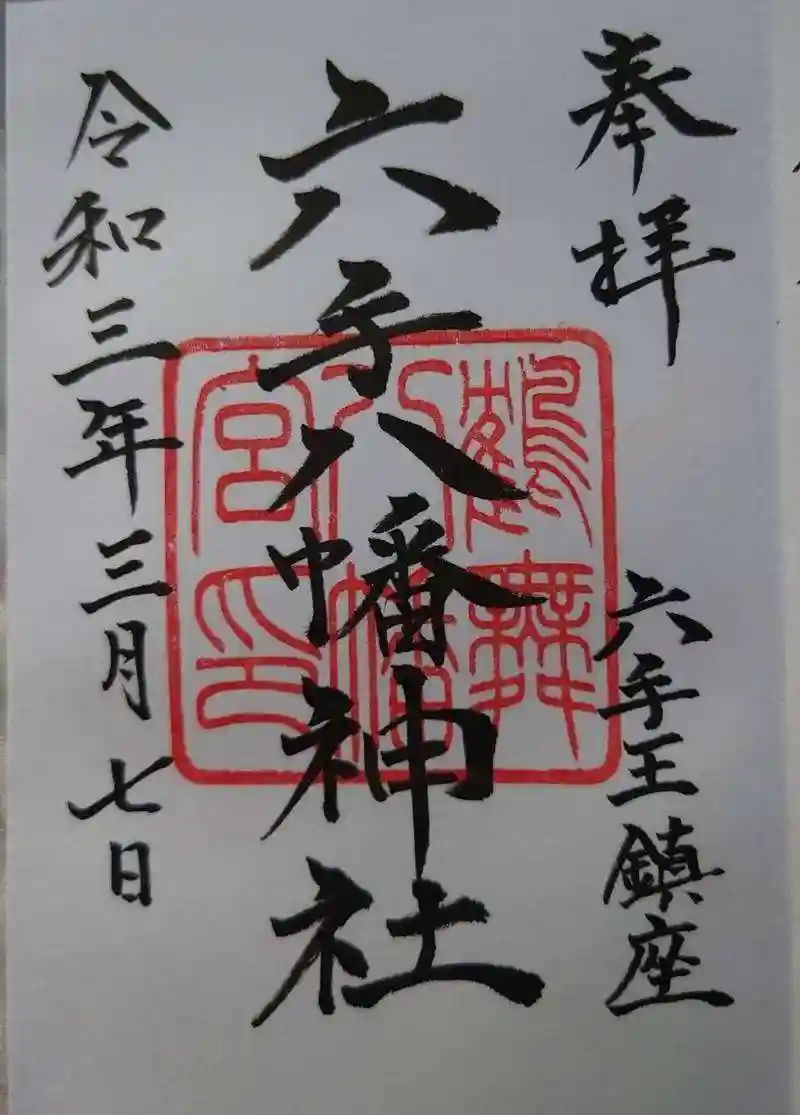 奉拝
六手王鎮座
六手八幡神社
鶴舞
八幡
宮印
令和三年三月七日